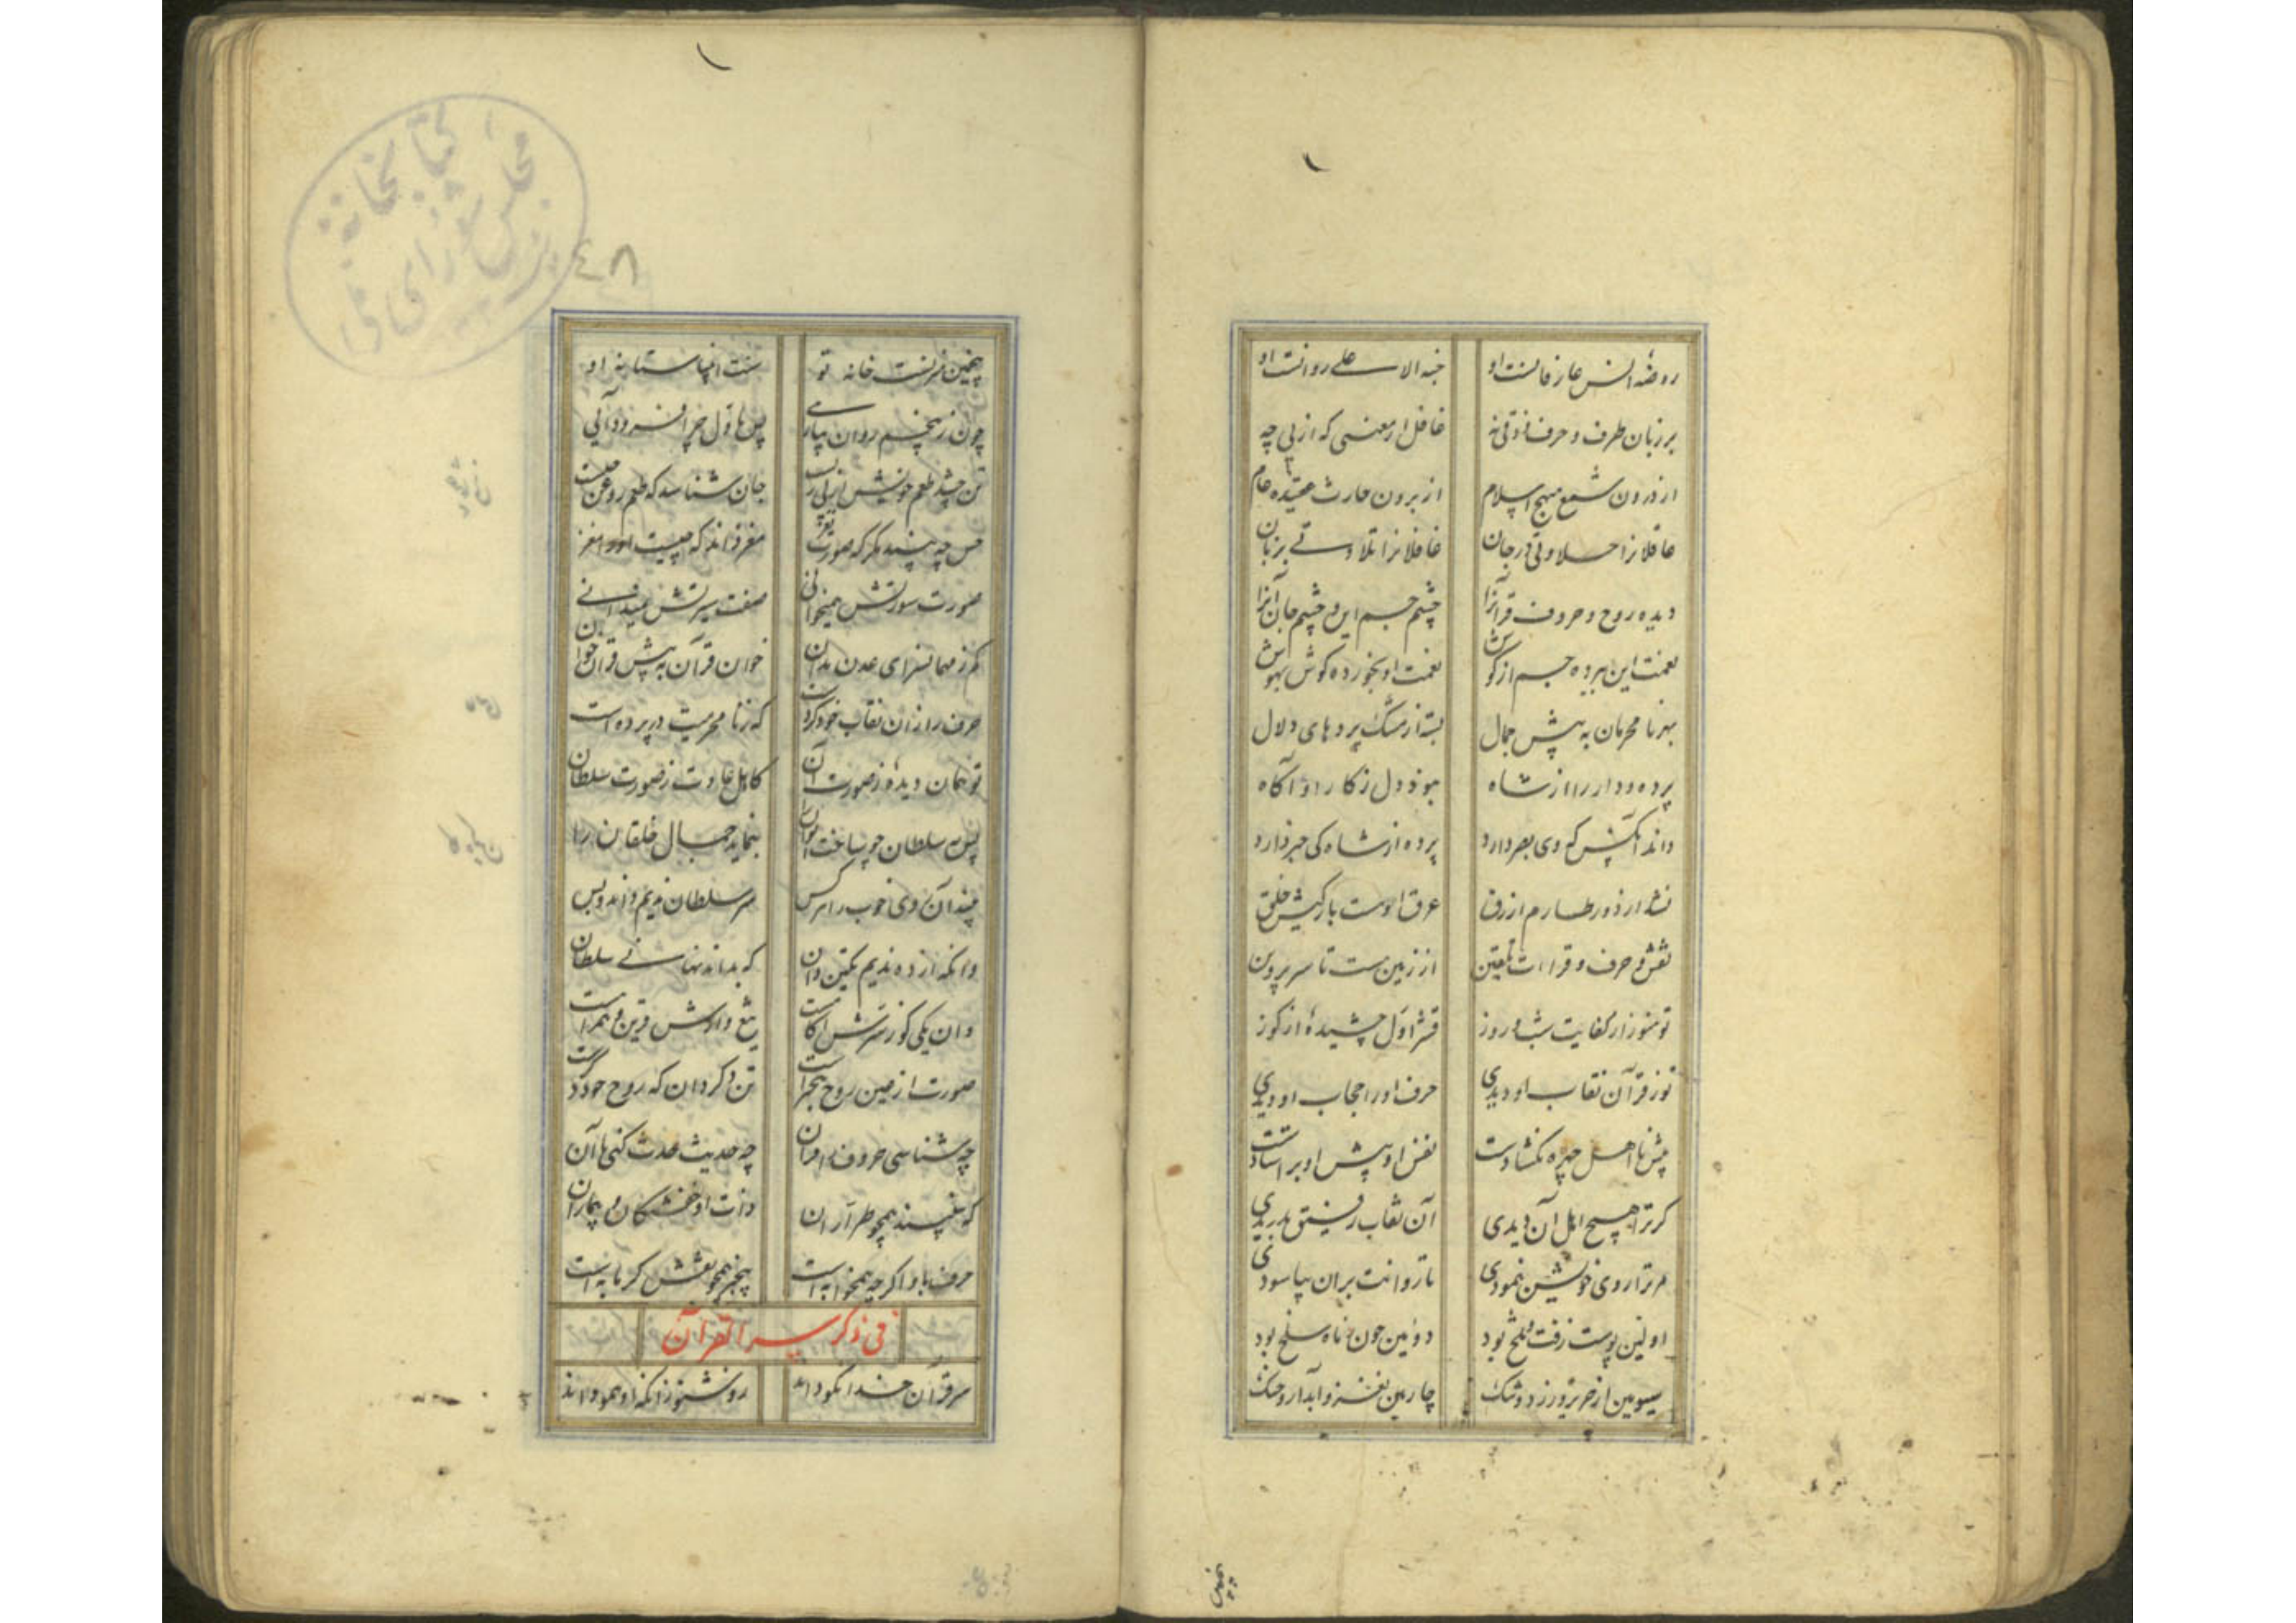 روضه انس عارفانست او جنة الاعلی روانست او
بر زبان طرف و حرف ذوقی نه غافل از معنی که از پی چه
از درون شمع منهج اسلام از برون حارث عقیده عام
عاقلانرا حلاوتی در جان غافلانرا تلاوتی بزبان
دیده روح و حروف قرآنرا چشم جسم این و چشم جان آنرا
نعمت این برده جسم از گوش نعمت او بخورده گوش بهوش
بهر نامحرمان به پیش جمال بسته از مشک پردهای دلال
پرده و پرده دار را از شاه نبود دل ز کار او آگاه
داند آنکس که وی بصر دارد پرده از شاه کی خبر دارد
نشد از دور طارم ازرق عرق اوست بارکیش خلق
نقش و حرف و قراءات یقین از زمینست تا سر پروین
تو هنوز از کفایت شب و روز قشر اول چشیدۀ از کوز
تو ز قرآن نقاب او دیدی حرف او را حجاب او دیدی
پیش نا اهل چهره نگشادست نقش او پیش او بر استادست
گر ترا هیچ اهل آن دیدی آن نقاب رقیق بدریدی
مر ترا روی خویشتن نمودی تا روانت بدان بیاسودی
اولین پوست زفت و تلخ بود دومین چون ز ماه سلخ بود
سیومین از حریر زرد و تنک چارمین مغز و آبدار و خنک
۴۸
کتابخانه مجلس شورای ملی
پنجمین منزلست خانه تو سنت انبیا ستانه تو
چون ز پنجم روان بیارایی پس باول چرا فرود آیی
تن چشد طعم خویش از پی زیست جان شناسد که طعم روغن چیست
حس چه بیند مگر که صورت نغز مغز داند که چیست اورا مغز
صورت سورتش همیخوانی صفت سیرتش نمیدانی
کم ز مهمانسرای عدن مدان خوان قرآن به پیش قرآن خوان
حرف را زان نقاب خود کردست که ز نامحرمیت در پرده است
تو همان دیدۀ ز صورت آن کاهل عادت ز صورت سلطان
پس سلطان چو ساخت ایوان را بنماید جمال خلقان را
بیند آن روی خوب را هر کس سر سلطان ندیم داند و بس
وانکه از ده ندیم یکتن دان که بداند نهانی سلطان
وان یکی کو ز سرش آگاست تیغ دارش قرین و همراست
صورت از عین روح بیخبرست تن دگر دان که روح خود دگرست
چه شناسی حروف را قرآن چه حدیث حدث کنی با آن
حرف با او اگر چه همخوابه است بیخبر همچو نقش گرمابه است
فی ذکر سر القرآن
سر قرآن خدا نکو داند زو شنو زانکه او همو داند
پنجمین